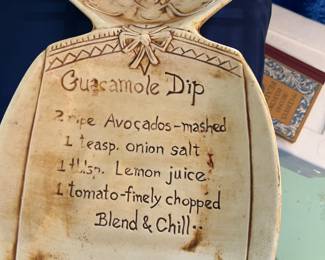 Guacamole Dip
2 ripe Avocados-mashed
1 teasp. onion salt
1 tblsp. Lemon juice
1 tomato-finely chopped
Blend & Chill..